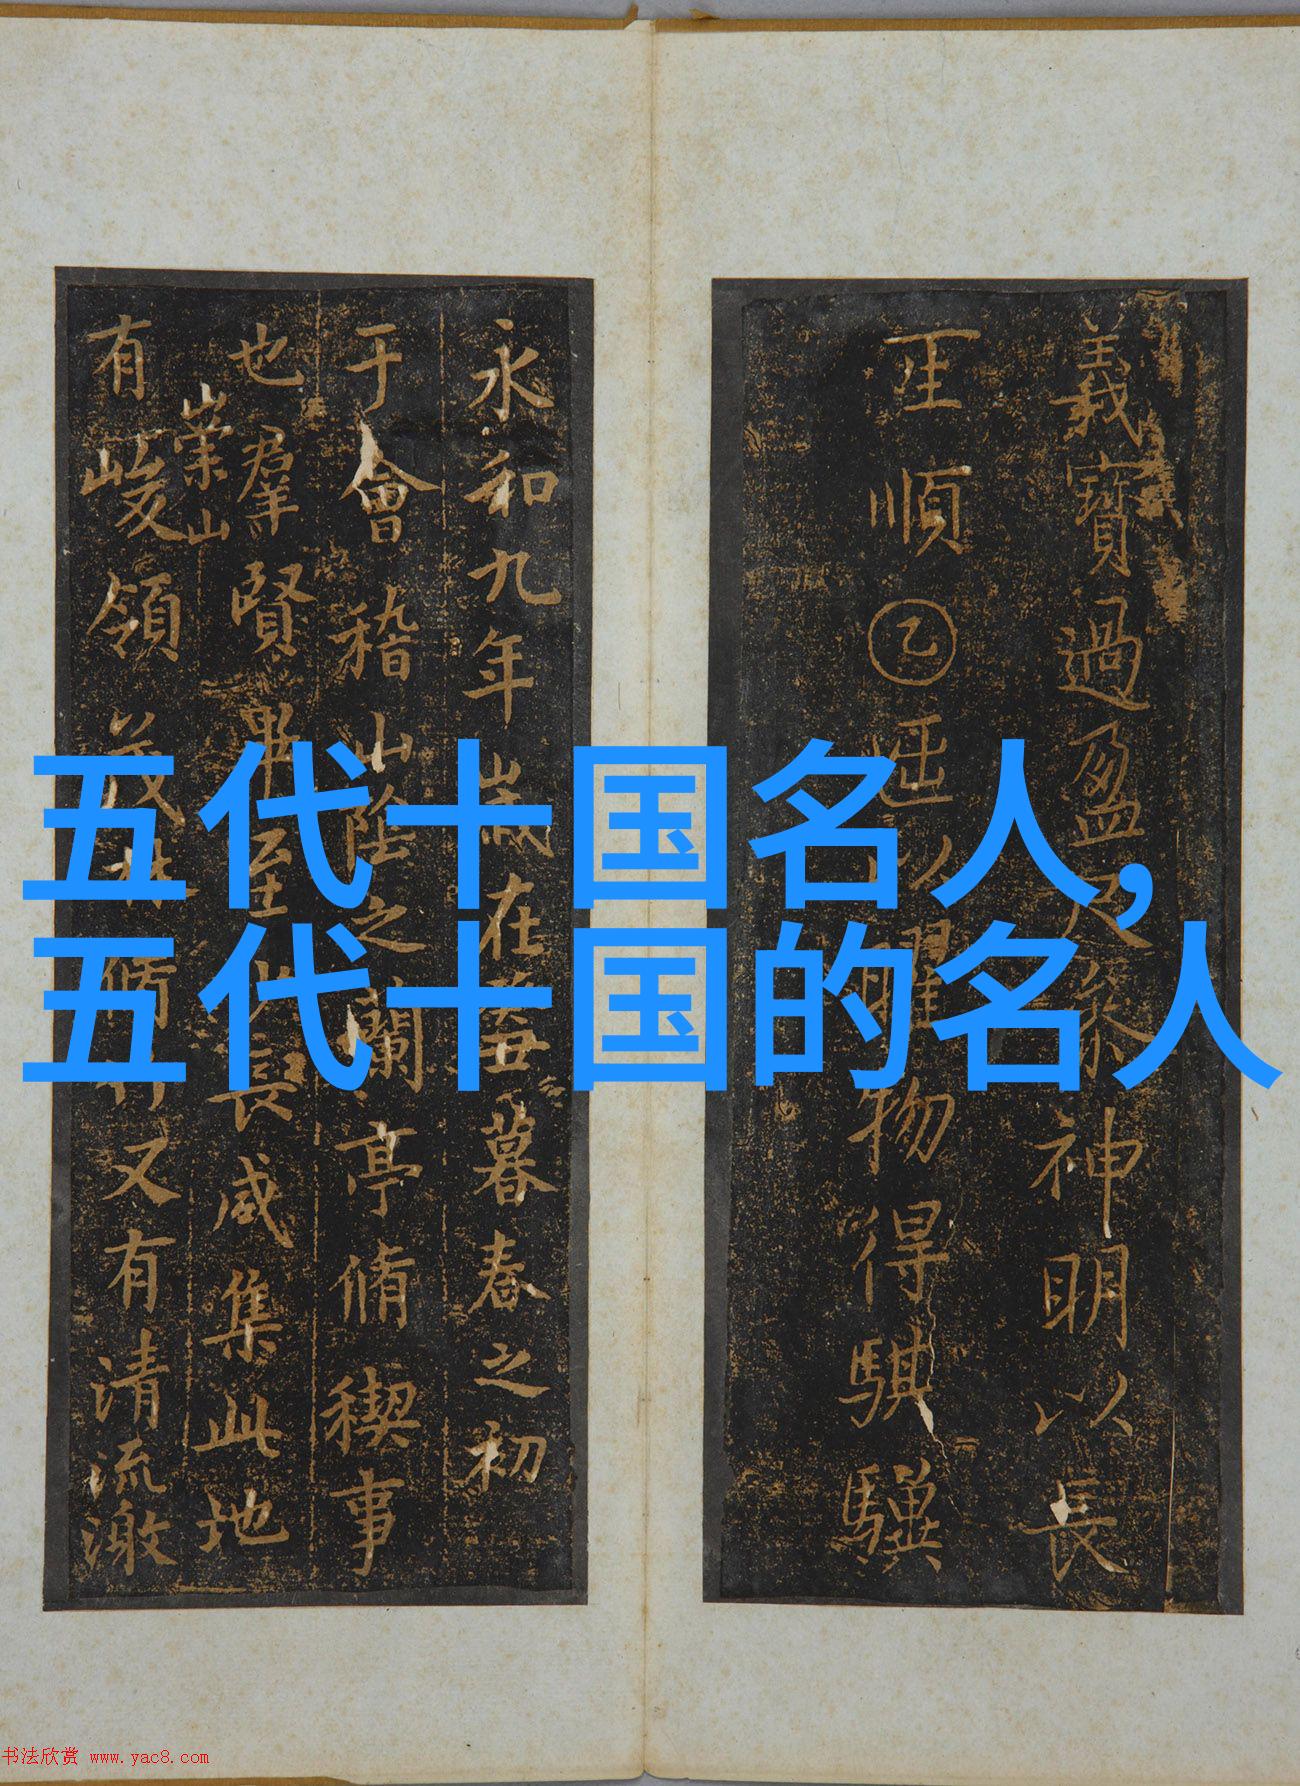 五代十国名人,
五代十国的名人
義寶過盈尺 神明以長
順乙 以耀物得騏驥
永和九年歲在癸丑暮春之初
于會稽山陰之蘭亭脩禊事
也羣賢畢至少長咸集此地
崇山
有峻領茂林脩竹又有清流激
书法欣赏 www.yac8.com